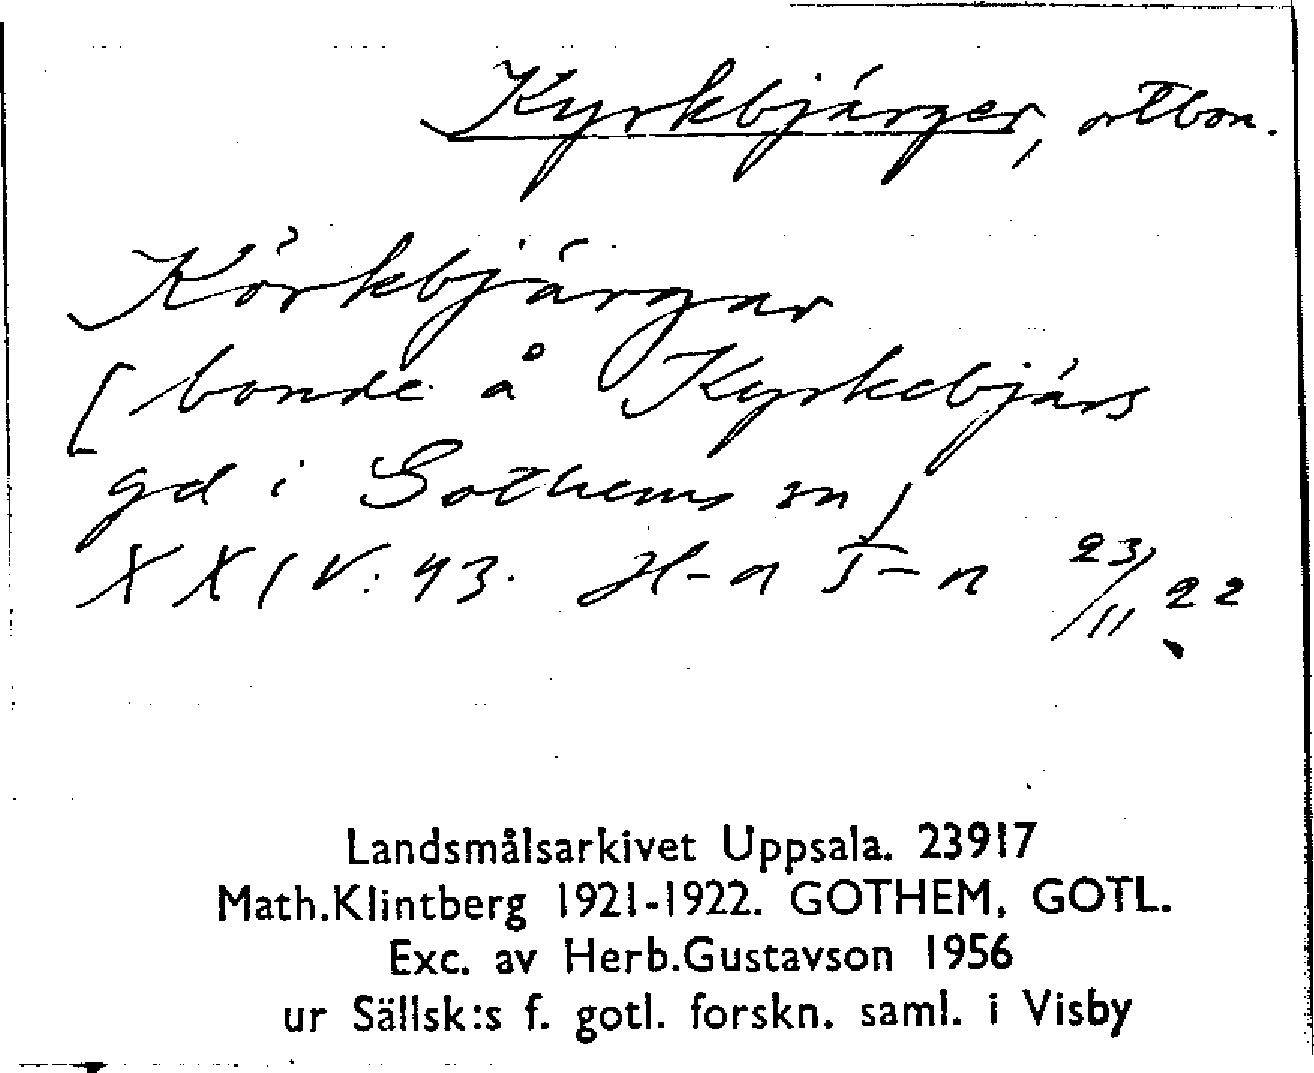 Kyrkbjärger, ortbon.
Körkbjärgar
[bonde å Kyrkebjärs
gd i Gothems sn]
XXIV:43. H-n T-n 23/11 22
Landsmålsarkivet Uppsala. 23917
Math.Klintberg 1921-1922. GOTHEM, GOTL.
Exc. av Herb.Gustavson 1956
ur Sällsk:s f. gotl. forskn. saml. i Visby